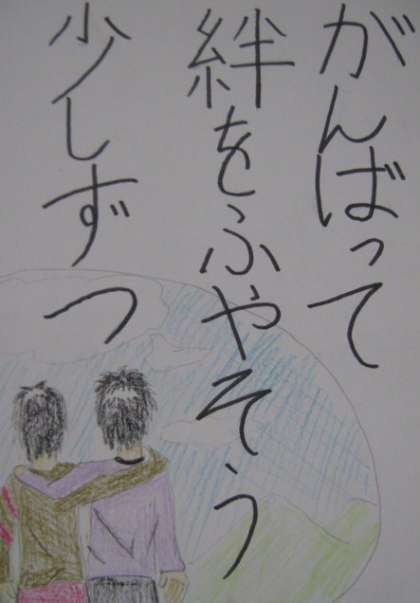 がんばって
絆をふやそう
少しずつ